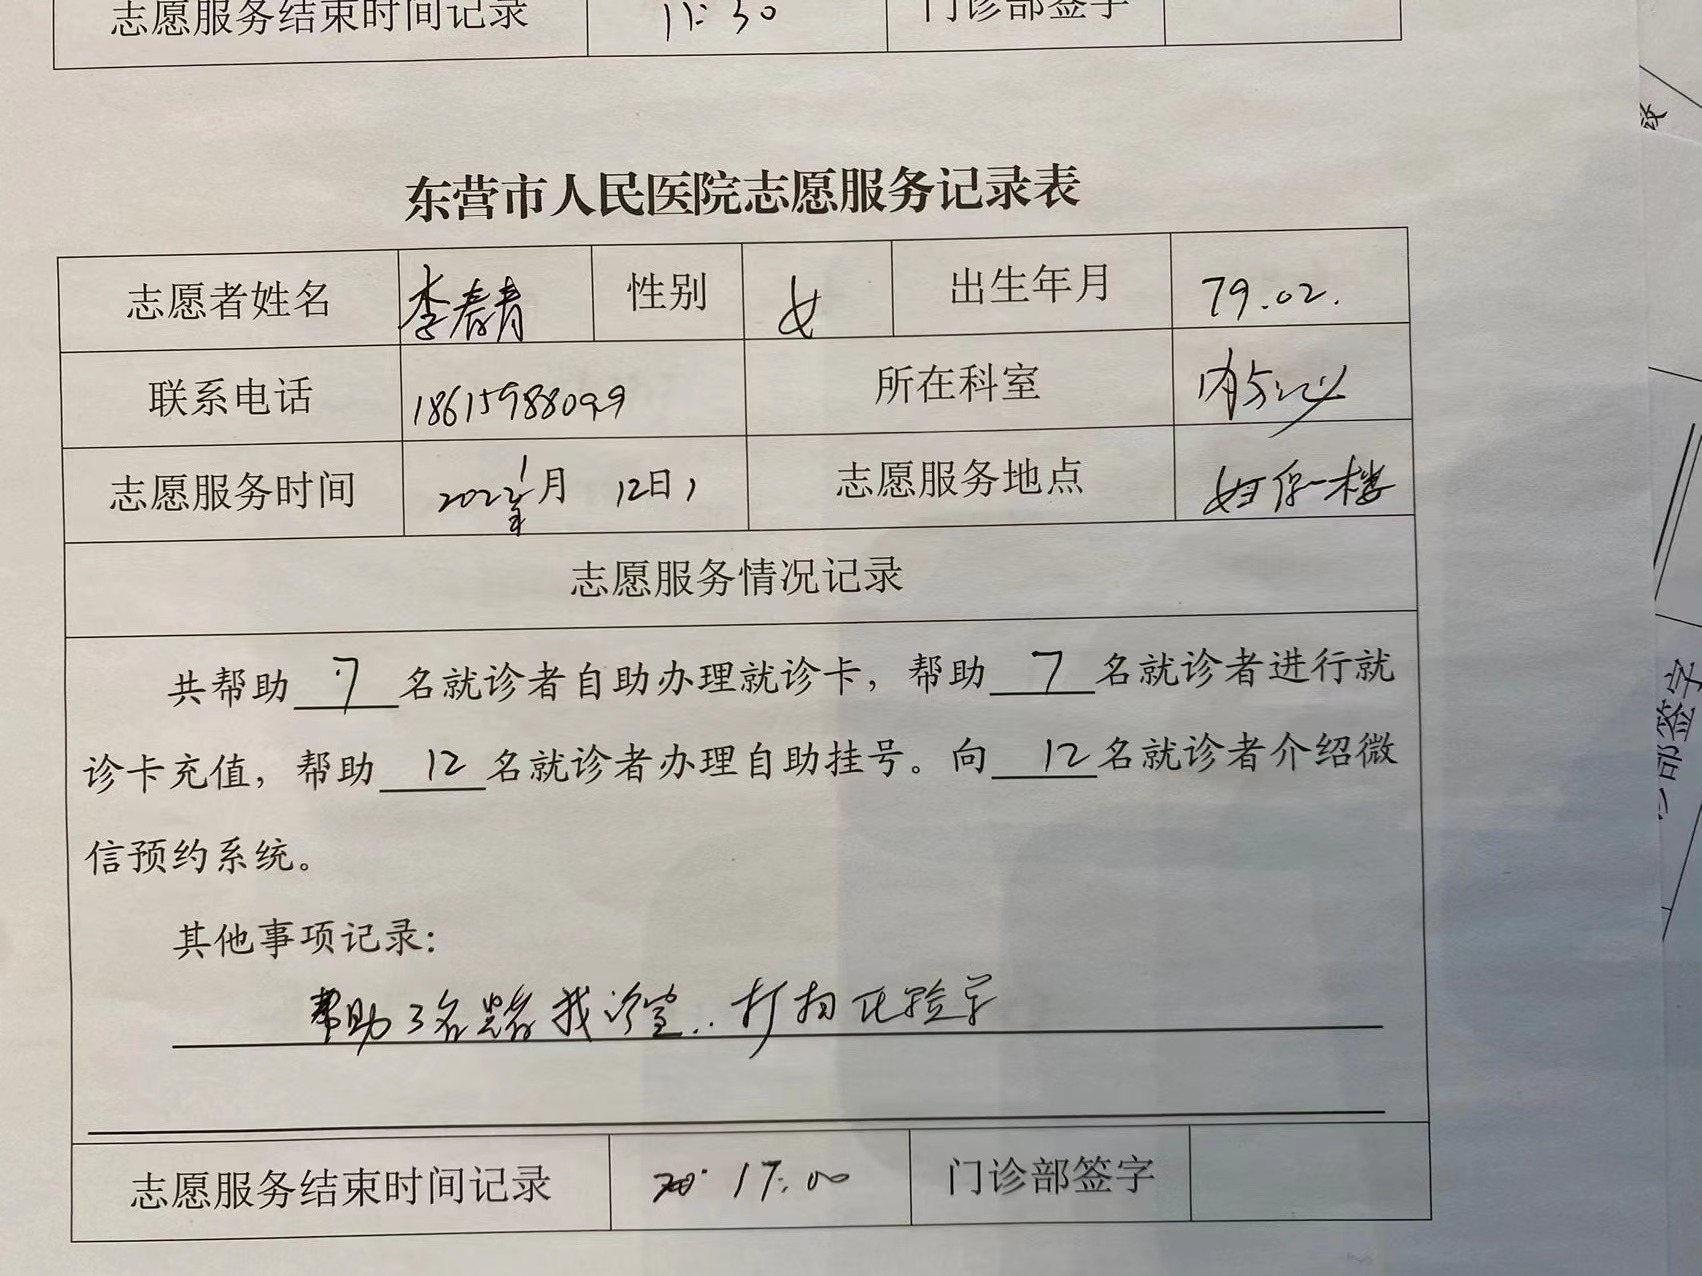 志愿服务结束时间记录 11:30 门诊部签字
东营市人民医院志愿服务记录表
志愿者姓名 李春青 性别 女 出生年月 79.02.
联系电话 18615988099 所在科室
志愿服务时间 2022年1月 12日 志愿服务地点 妇保一楼
志愿服务情况记录
共帮助 7 名就诊者自助办理就诊卡，帮助 7 名就诊者进行就
诊卡充值，帮助 12 名就诊者办理自助挂号。向 12 名就诊者介绍微
信预约系统。
其他事项记录：
帮助3名患者找诊室..打扫化验室
志愿服务结束时间记录 17:00 门诊部签字
部签字